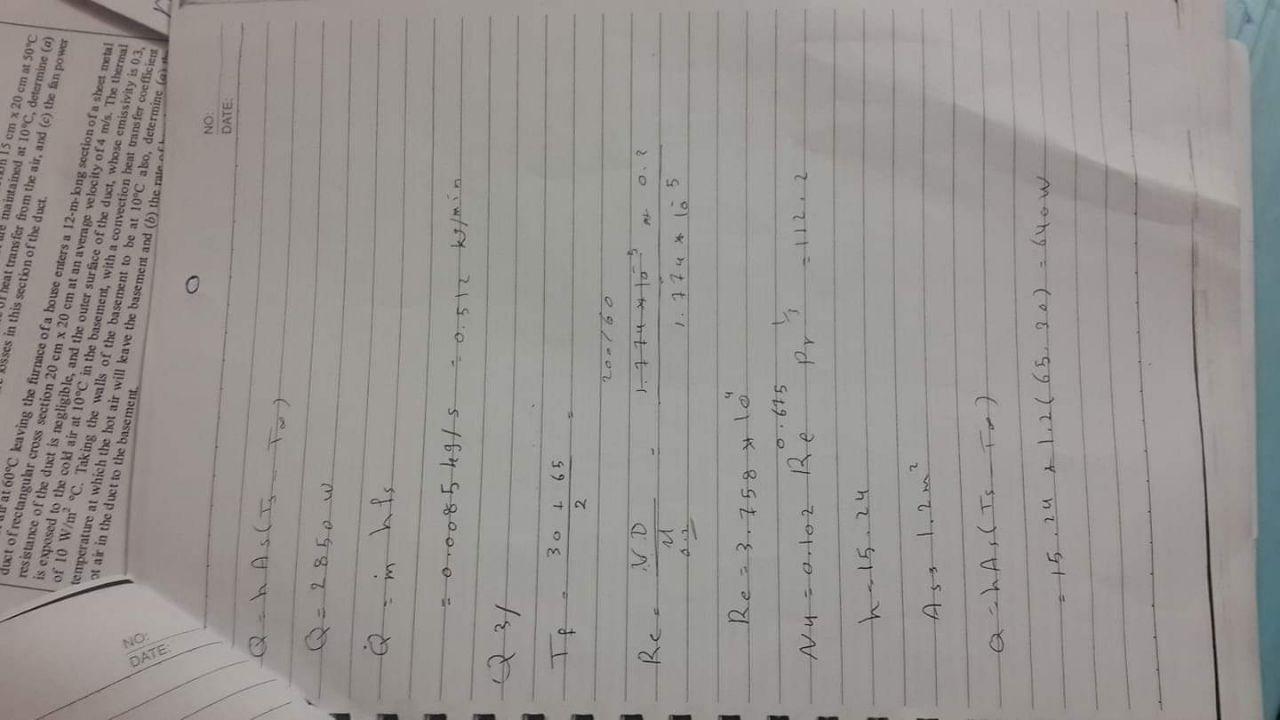 15 cm x 20 cm at 50°C
are maintained at 10°C, determine (a)
of heat transfer from the air, and (c) the fan power
losses in this section of the duct.
air at 60°C leaving the furnace of a house enters a 12-m-long section of a sheet metal
duct of rectangular cross section 20 cm x 20 cm at an average velocity of 4 m/s. The thermal
resistance of the duct is negligible, and the outer surface of the duct, whose emissivity is 0.3,
is exposed to the cold air at 10°C in the basement, with a convection heat transfer coefficient
of 10 W/m² °C. Taking the walls of the basement to be at 10°C also, determine (a) the
temperature at which the hot air will leave the basement and (b) the rate of
ot air in the duct to the basement.
NO:
DATE:
NO:
DATE:
Q = hAs(Ts - T∞)
Q = 2850 W
Q̇ = ṁ hfs
= 0.0085 kg/s = 0.512 kg/min
Q3/
Tf = 30 + 65 =
2
200/60
Re = V.D = 1.774 * 10⁻⁵ * 0.2
1.774 * 10⁻⁵
Re = 3.758 * 10⁴
Nu = 0.102 Re^0.675 Pr^1/3 = 112.2
h = 15.24
As = 1.2 m²
Q = hAs(Ts - T∞)
= 15.24 * 1.2(65-30) = 640W